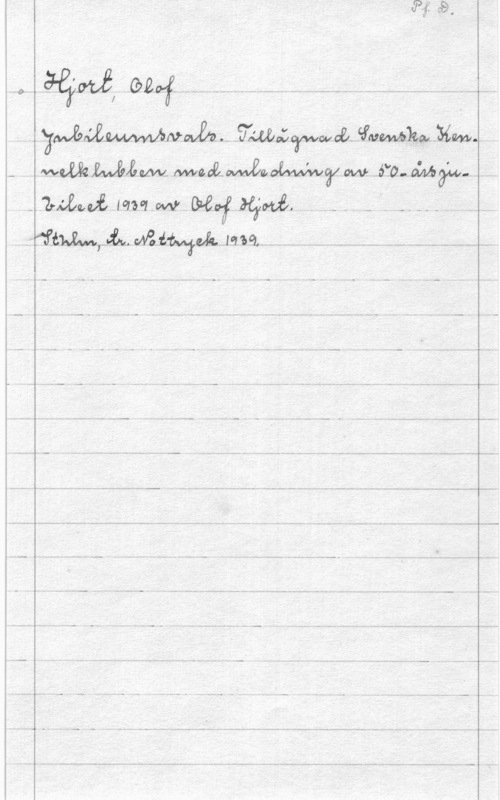 Pf D.
Hjort, Olof
Jubileumsvals. Tillägnad Svenska Ken-
nelklubben med anledning av 50-årsju-
bileet 1939 av Olof Hjort.
Sthlm, tr. Nottryck 1939.